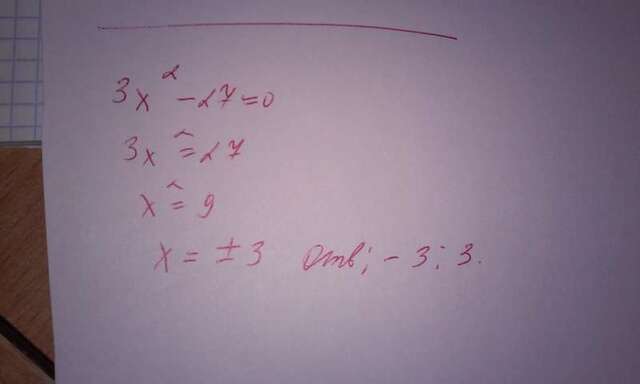 3x² - 27 = 0
3x² = 27
x² = 9
x = ± 3 Отв; - 3; 3.